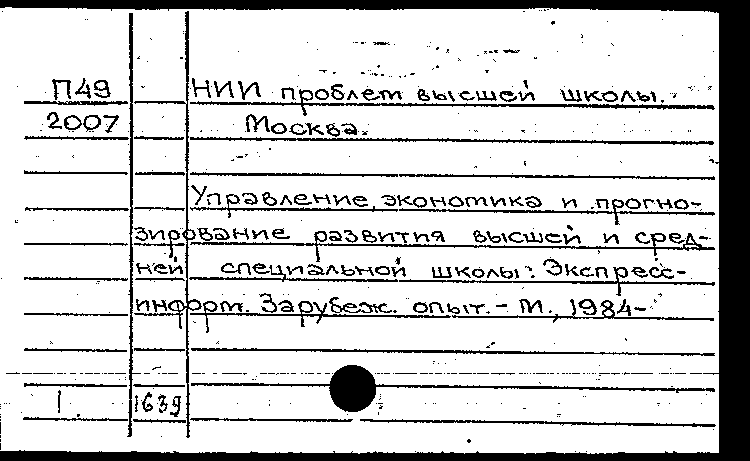 П49 НИИ проблем высшей школы.
2007 Москва.
Управление, экономика и прогно-
зирование развития высшей и сред-
ней специальной школы: Экспресс-
информ. Зарубеж. опыт. - М., 1984-
1 1639